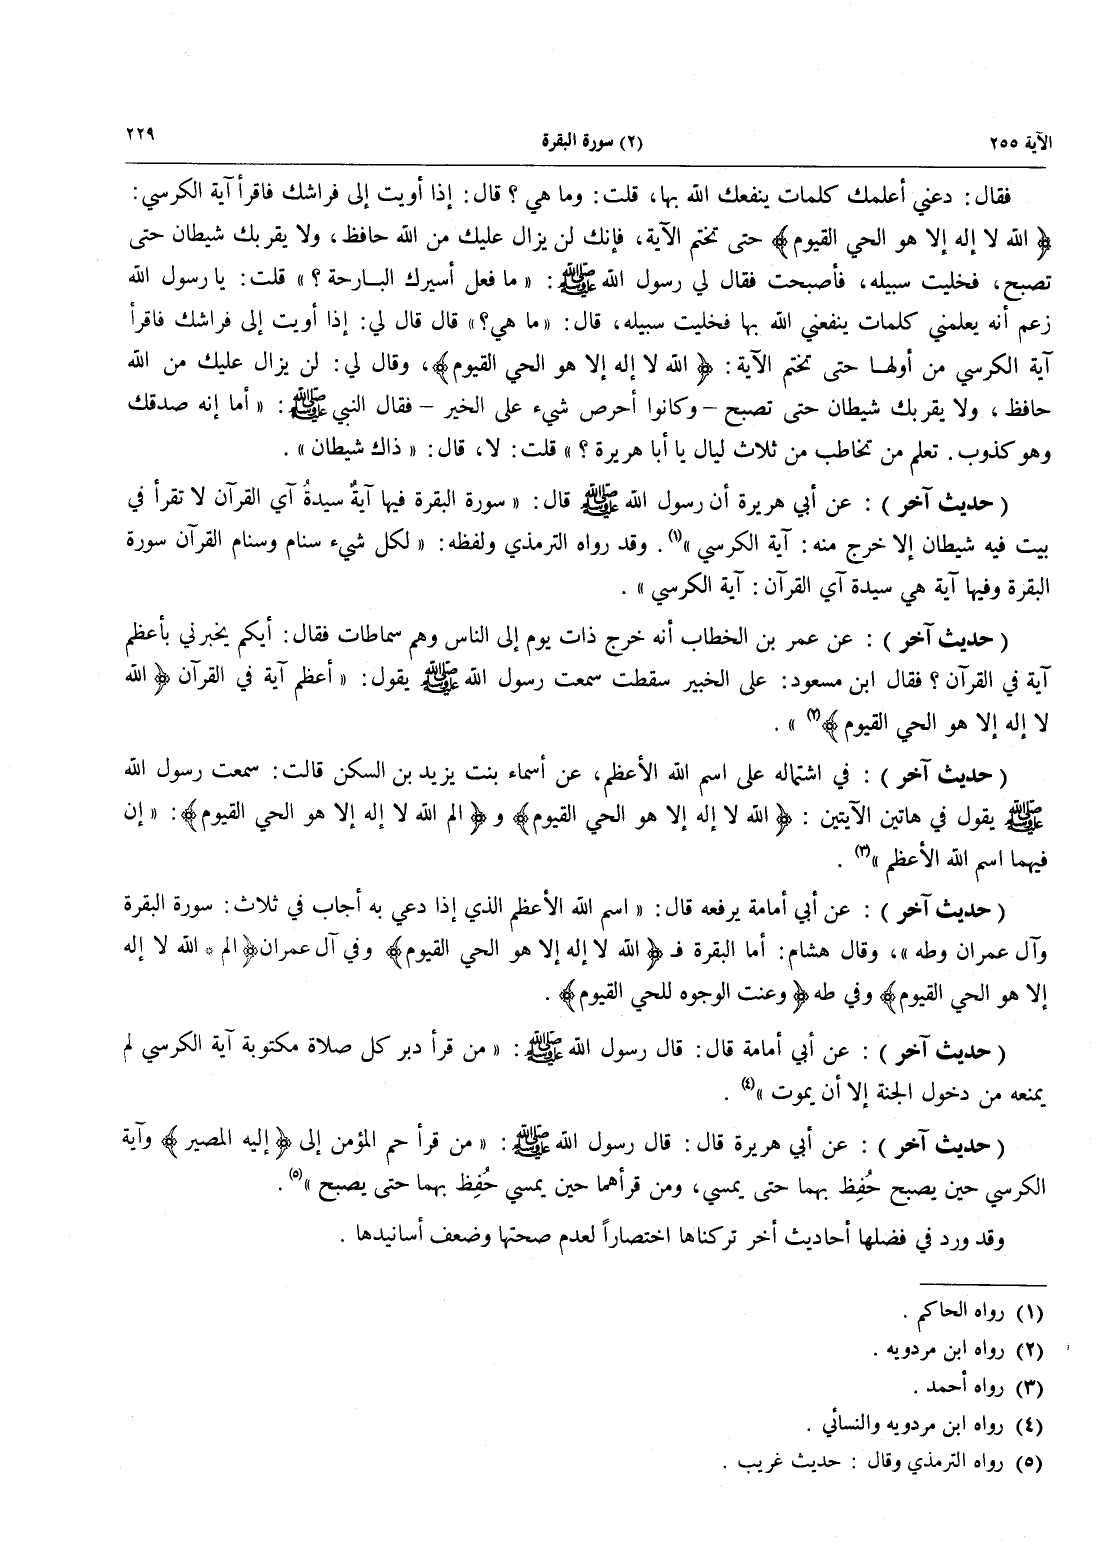 الآية ٢٥٥
(٢) سورة البقرة
٢٢٩
فقال: دعني أعلمك كلمات ينفعك الله بها، قلت: وما هي؟ قال: إذا أويت إلى فراشك فاقرأ آية الكرسي:
﴿ الله لا إله إلا هو الحي القيوم﴾ حتى تختم الآية، فإنك لن يزال عليك من الله حافظ، ولا يقربك شيطان حتى
تصبح، فخليت سبيله، فأصبحت فقال لي رسول الله ﷺ: « ما فعل أسيرك البارحة؟ » قلت: يا رسول الله
زعم أنه يعلمني كلمات ينفعني الله بها فخليت سبيله، قال: «ما هي؟» قال قال لي: إذا أويت إلى فراشك فاقرأ
آية الكرسي من أولها حتى تختم الآية: ﴿ الله لا إله إلا هو الحي القيوم﴾، وقال لي: لن يزال عليك من الله
حافظ، ولا يقربك شيطان حتى تصبح – وكانوا أحرص شيء على الخير – فقال النبي ﷺ: « أما إنه صدقك
وهو كذوب. تعلم من تخاطب من ثلاث ليال يا أبا هريرة؟ » قلت: لا، قال: « ذاك شيطان » .
( حديث آخر ) : عن أبي هريرة أن رسول الله ﷺ قال: « سورة البقرة فيها آيةٌ سيدةُ آي القرآن لا تقرأ في
بيت فيه شيطان إلا خرج منه: آية الكرسي »(١). وقد رواه الترمذي ولفظه: « لكل شيء سنام وسنام القرآن سورة
البقرة وفيها آية هي سيدة آي القرآن: آية الكرسي » .
( حديث آخر ) : عن عمر بن الخطاب أنه خرج ذات يوم إلى الناس وهم سماطات فقال: أيكم يخبرني بأعظم
آية في القرآن؟ فقال ابن مسعود: على الخبير سقطت سمعت رسول الله ﷺ يقول: « أعظم آية في القرآن ﴿ الله
لا إله إلا هو الحي القيوم ﴾(٢) » .
( حديث آخر ) : في اشتماله على اسم الله الأعظم، عن أسماء بنت يزيد بن السكن قالت: سمعت رسول الله
ﷺ يقول في هاتين الآيتين : ﴿ الله لا إله إلا هو الحي القيوم﴾ و﴿ الم الله لا إله إلا هو الحي القيوم﴾: « إن
فيهما اسم الله الأعظم »(٣) .
( حديث آخر ) : عن أبي أمامة يرفعه قال: « اسم الله الأعظم الذي إذا دعي به أجاب في ثلاث: سورة البقرة
وآل عمران وطه »، وقال هشام: أما البقرة فـ ﴿ الله لا إله إلا هو الحي القيوم﴾ وفي آل عمران﴿ الم * الله لا إله
إلا هو الحي القيوم﴾ وفي طه﴿ وعنت الوجوه للحي القيوم﴾ .
( حديث آخر ) : عن أبي أمامة قال: قال رسول الله ﷺ: « من قرأ دبر كل صلاة مكتوبة آية الكرسي لم
يمنعه من دخول الجنة إلا أن يموت »(٤) .
( حديث آخر ) : عن أبي هريرة قال: قال رسول الله ﷺ: « من قرأ حم المؤمن إلى ﴿ إليه المصير ﴾ وآية
الكرسي حين يصبح حُفِظ بهما حتى يمسي، ومن قرأهما حين يمسي حُفِظ بهما حتى يصبح »(٥) .
وقد ورد في فضلها أحاديث أخر تركناها اختصاراً لعدم صحتها وضعف أسانيدها .
(١) رواه الحاكم .
(٢) رواه ابن مردويه .
(٣) رواه أحمد .
(٤) رواه ابن مردويه والنسائي .
(٥) رواه الترمذي وقال : حديث غريب .